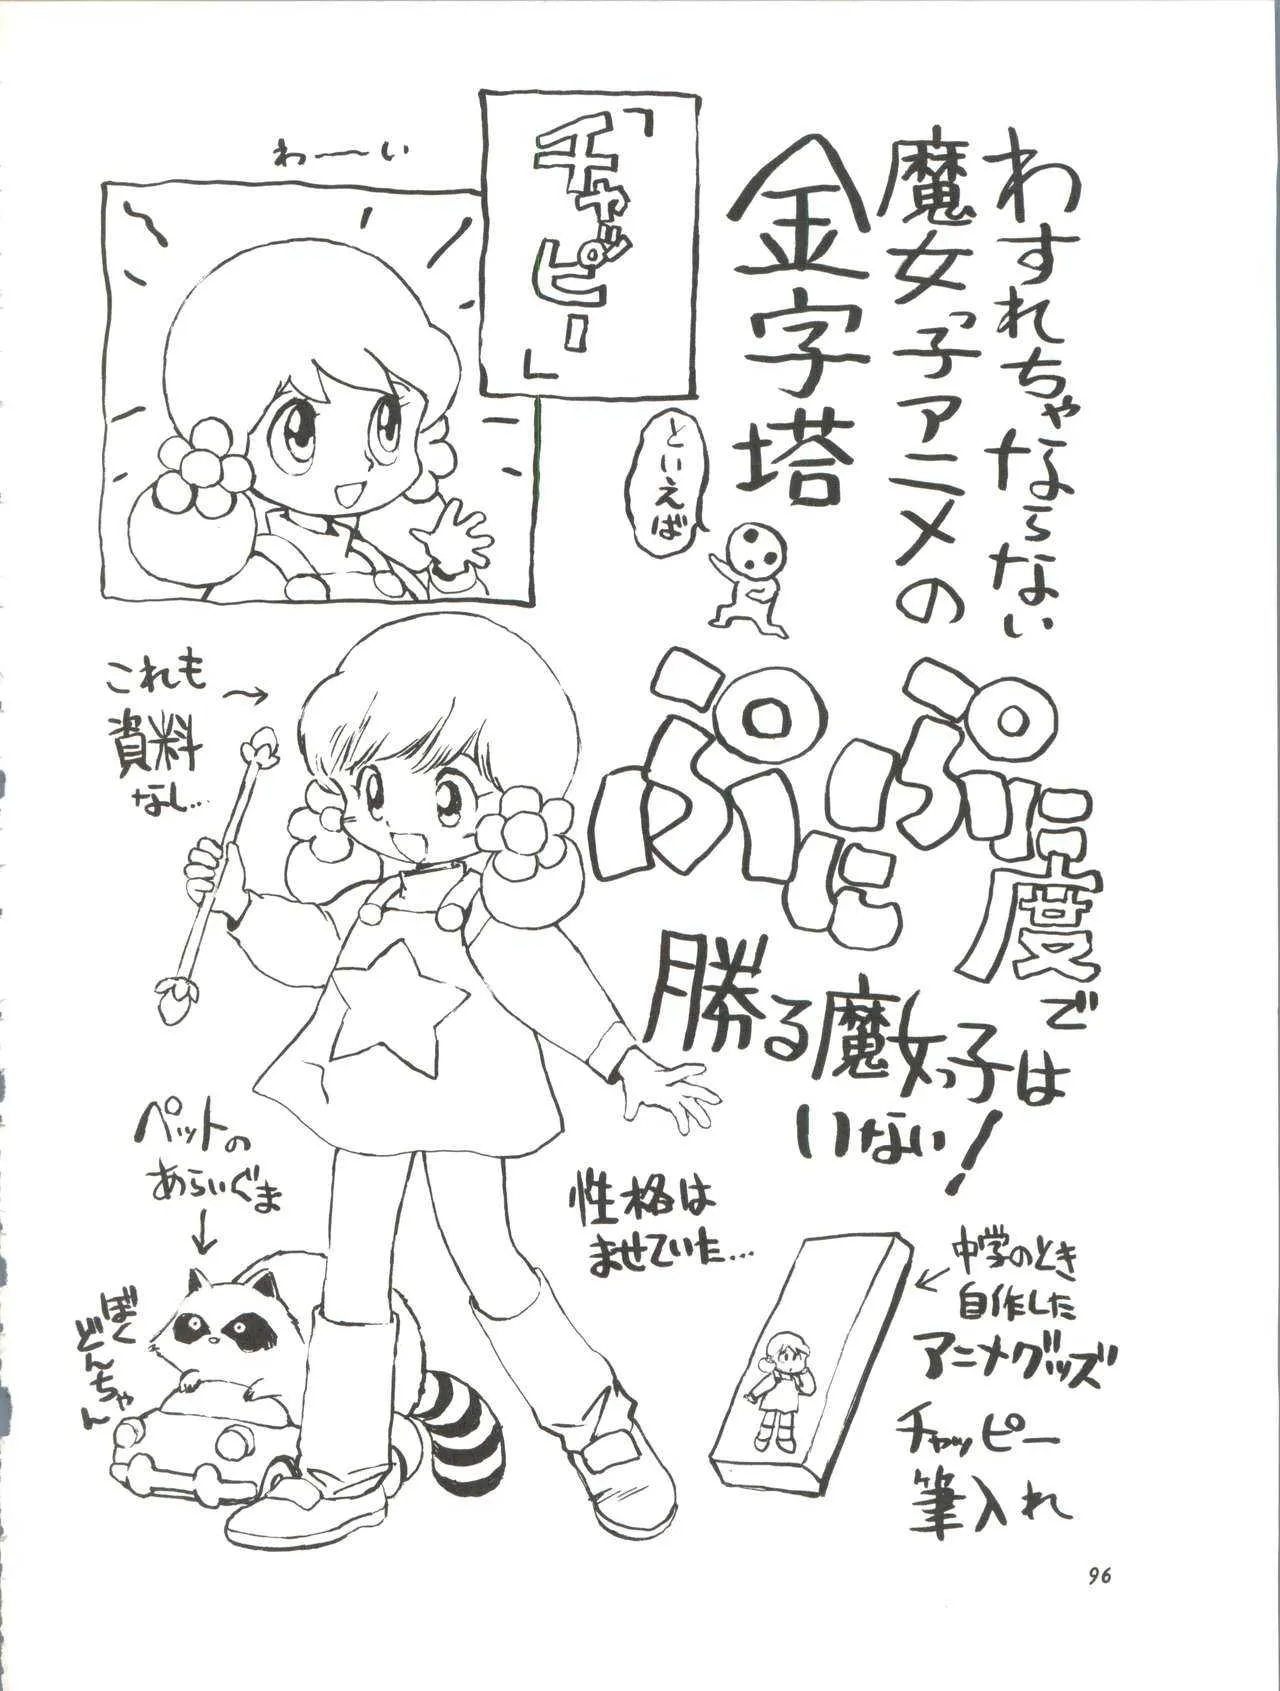 わすれちゃならない
魔女っ子アニメの
金字塔
といえば
「チャッピー」
わーい
ぷにぷに度では
ぷに
勝る魔女っ子は
いない!
これも
資料
なし…
ペットの
あらいぐま
ぼく
どんちゃん
性格は
ませていた…
中学のとき
自作した
アニメグッズ
チャッピー
筆入れ
96